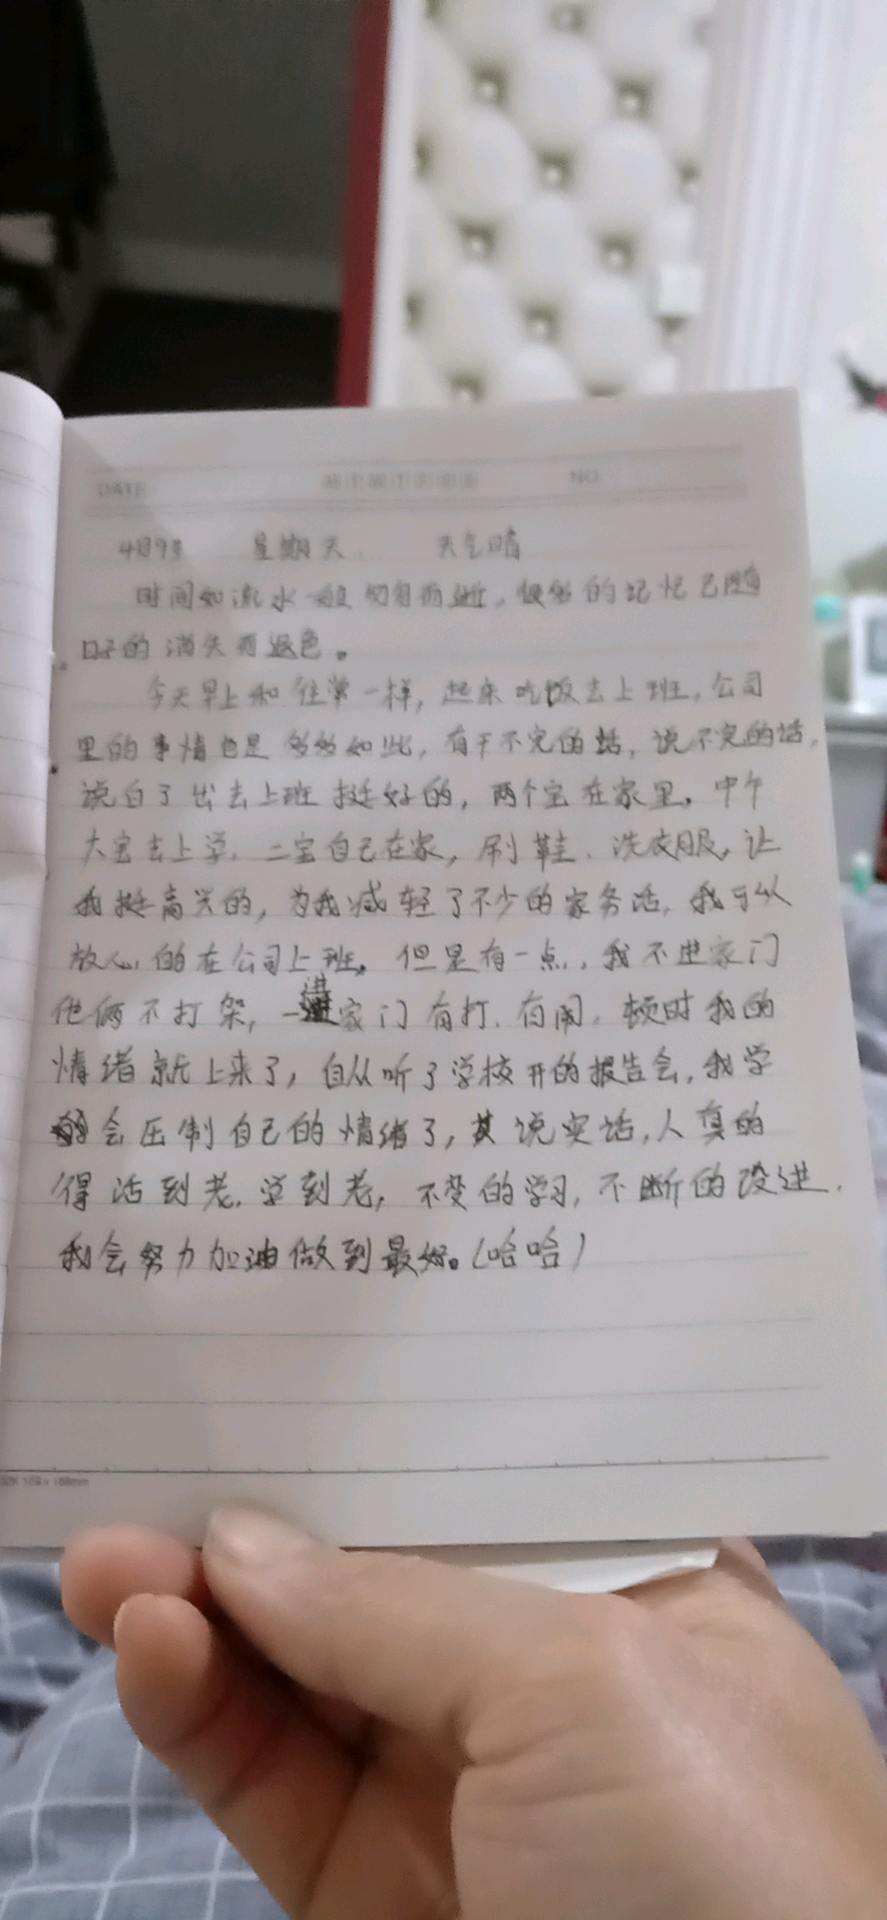 DATE NO
4月9号 星期天 天气晴
时间如流水一般匆匆而逝，很多的记忆已随
日子的消失而退色。
今天早上和往常一样，起来吃饭去上班，公司
里的事情也是多多如此，有干不完的活，说不完的话，
说白了出去上班挺好的，两个宝在家里。中午
大宝去上学，二宝自己在家，刷鞋、洗衣服，让
我挺高兴的，为我减轻了不少的家务活，我可以
放心的在公司上班。但是有一点，我不进家门
他俩不打架，一进家门有打，有闹，顿时我的
情绪就上来了，自从听了学校开的报告会，我学
会压制自己的情绪了，其说实话，人真的
得活到老，学到老，不变的学习，不断的改进，
我会努力加油做到最好。(哈哈)